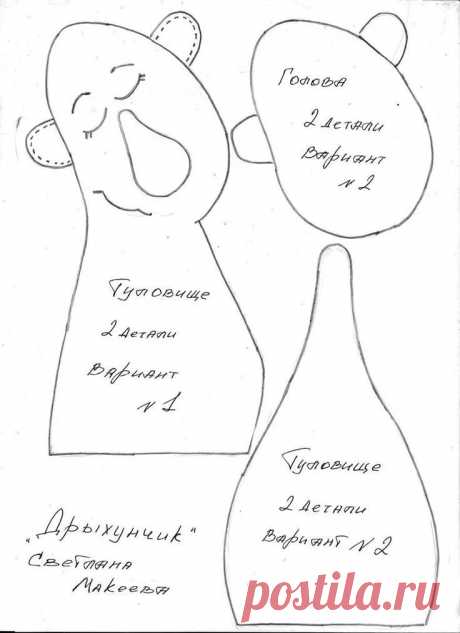 Голова
2 детали
Вариант
N 2
Туловище
2 детали
Вариант
N 1
Туловище
2 детали
Вариант N 2
"Дрыхунчик"
Светлана
Макеева
postila.ru